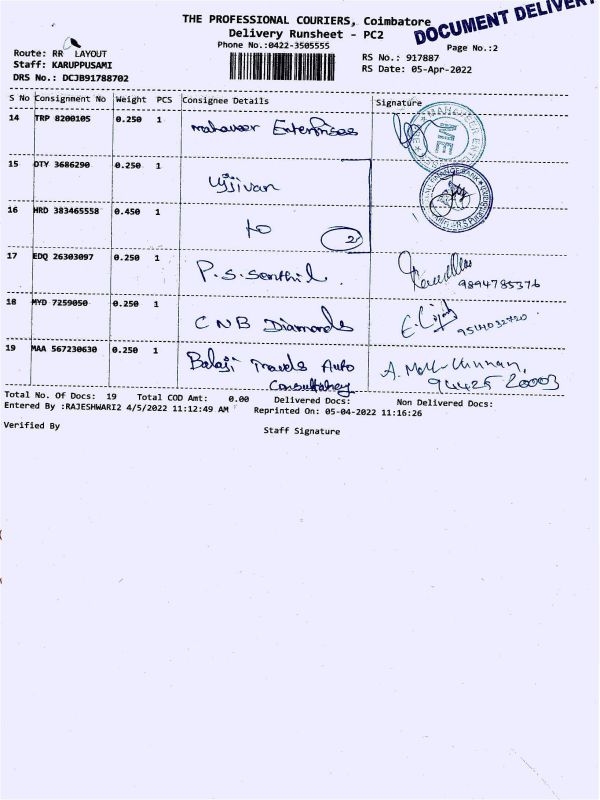 THE PROFESSIONAL COURIERS, Coimbatore
DOCUMENT DELIVERY
Delivery Runsheet - PC2
Phone No.:0422-3505555
Page No.:2
Route: RR LAYOUT
RS No.: 917887
Staff: KARUPPUSAMI
RS Date: 05-Apr-2022
DRS No.: DCJB91788702
S No Consignment No Weight PCS Consignee Details Signature
14 TRP 8200105 0.250 1 mahaveer Enterprises
ME
15 DTY 3686290 0.250 1 Ujjivan
16 HRD 383465558 0.450 1 to 2
17 EDQ 26303097 0.250 1 P.S.Senthil. 9894785376
18 MYD 7259050 0.250 1 CNB Diamonds 9514032720
19 MAA 567230630 0.250 1 Balaji Travels Auto
Consultancy 94425 20003
Total No. Of Docs: 19 Total COD Amt: 0.00 Delivered Docs: Non Delivered Docs:
Entered By :RAJESHWARI2 4/5/2022 11:12:49 AM Reprinted On: 05-04-2022 11:16:26
Verified By
Staff Signature